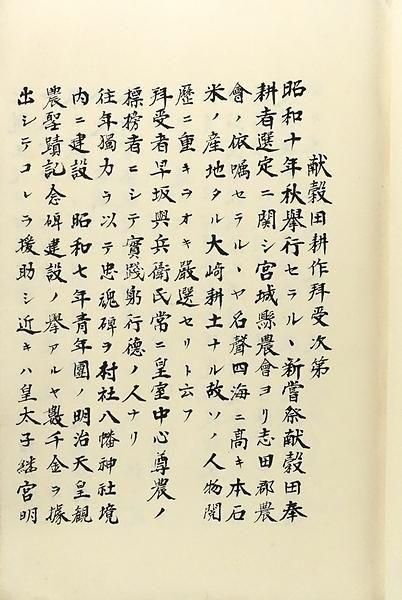 献穀田耕作拜受次第
昭和十年秋擧行セラルヽ新嘗祭献穀田奉
耕者選定ニ関シ宮城縣農會ヨリ志田郡農
會ノ依嘱セラルヽヤ名聲四海ニ高キ本石
米ノ産地タル大崎耕土ナル故ソノ人物閲
歴ニ重キヲオキ嚴選セリト云フ
拜受者早坂與兵衛氏常ニ皇室中心尊農ノ
標榜者ニシテ實踐躬行德ノ人ナリ
往年獨力ヲ以テ忠魂碑ヲ村社八幡神社境
内ニ建設 昭和七年青年團ノ明治天皇観
農聖蹟記念碑建設ノ擧アルヤ數千金ヲ據
出シテコレヲ援助シ近キハ皇太子継宮明